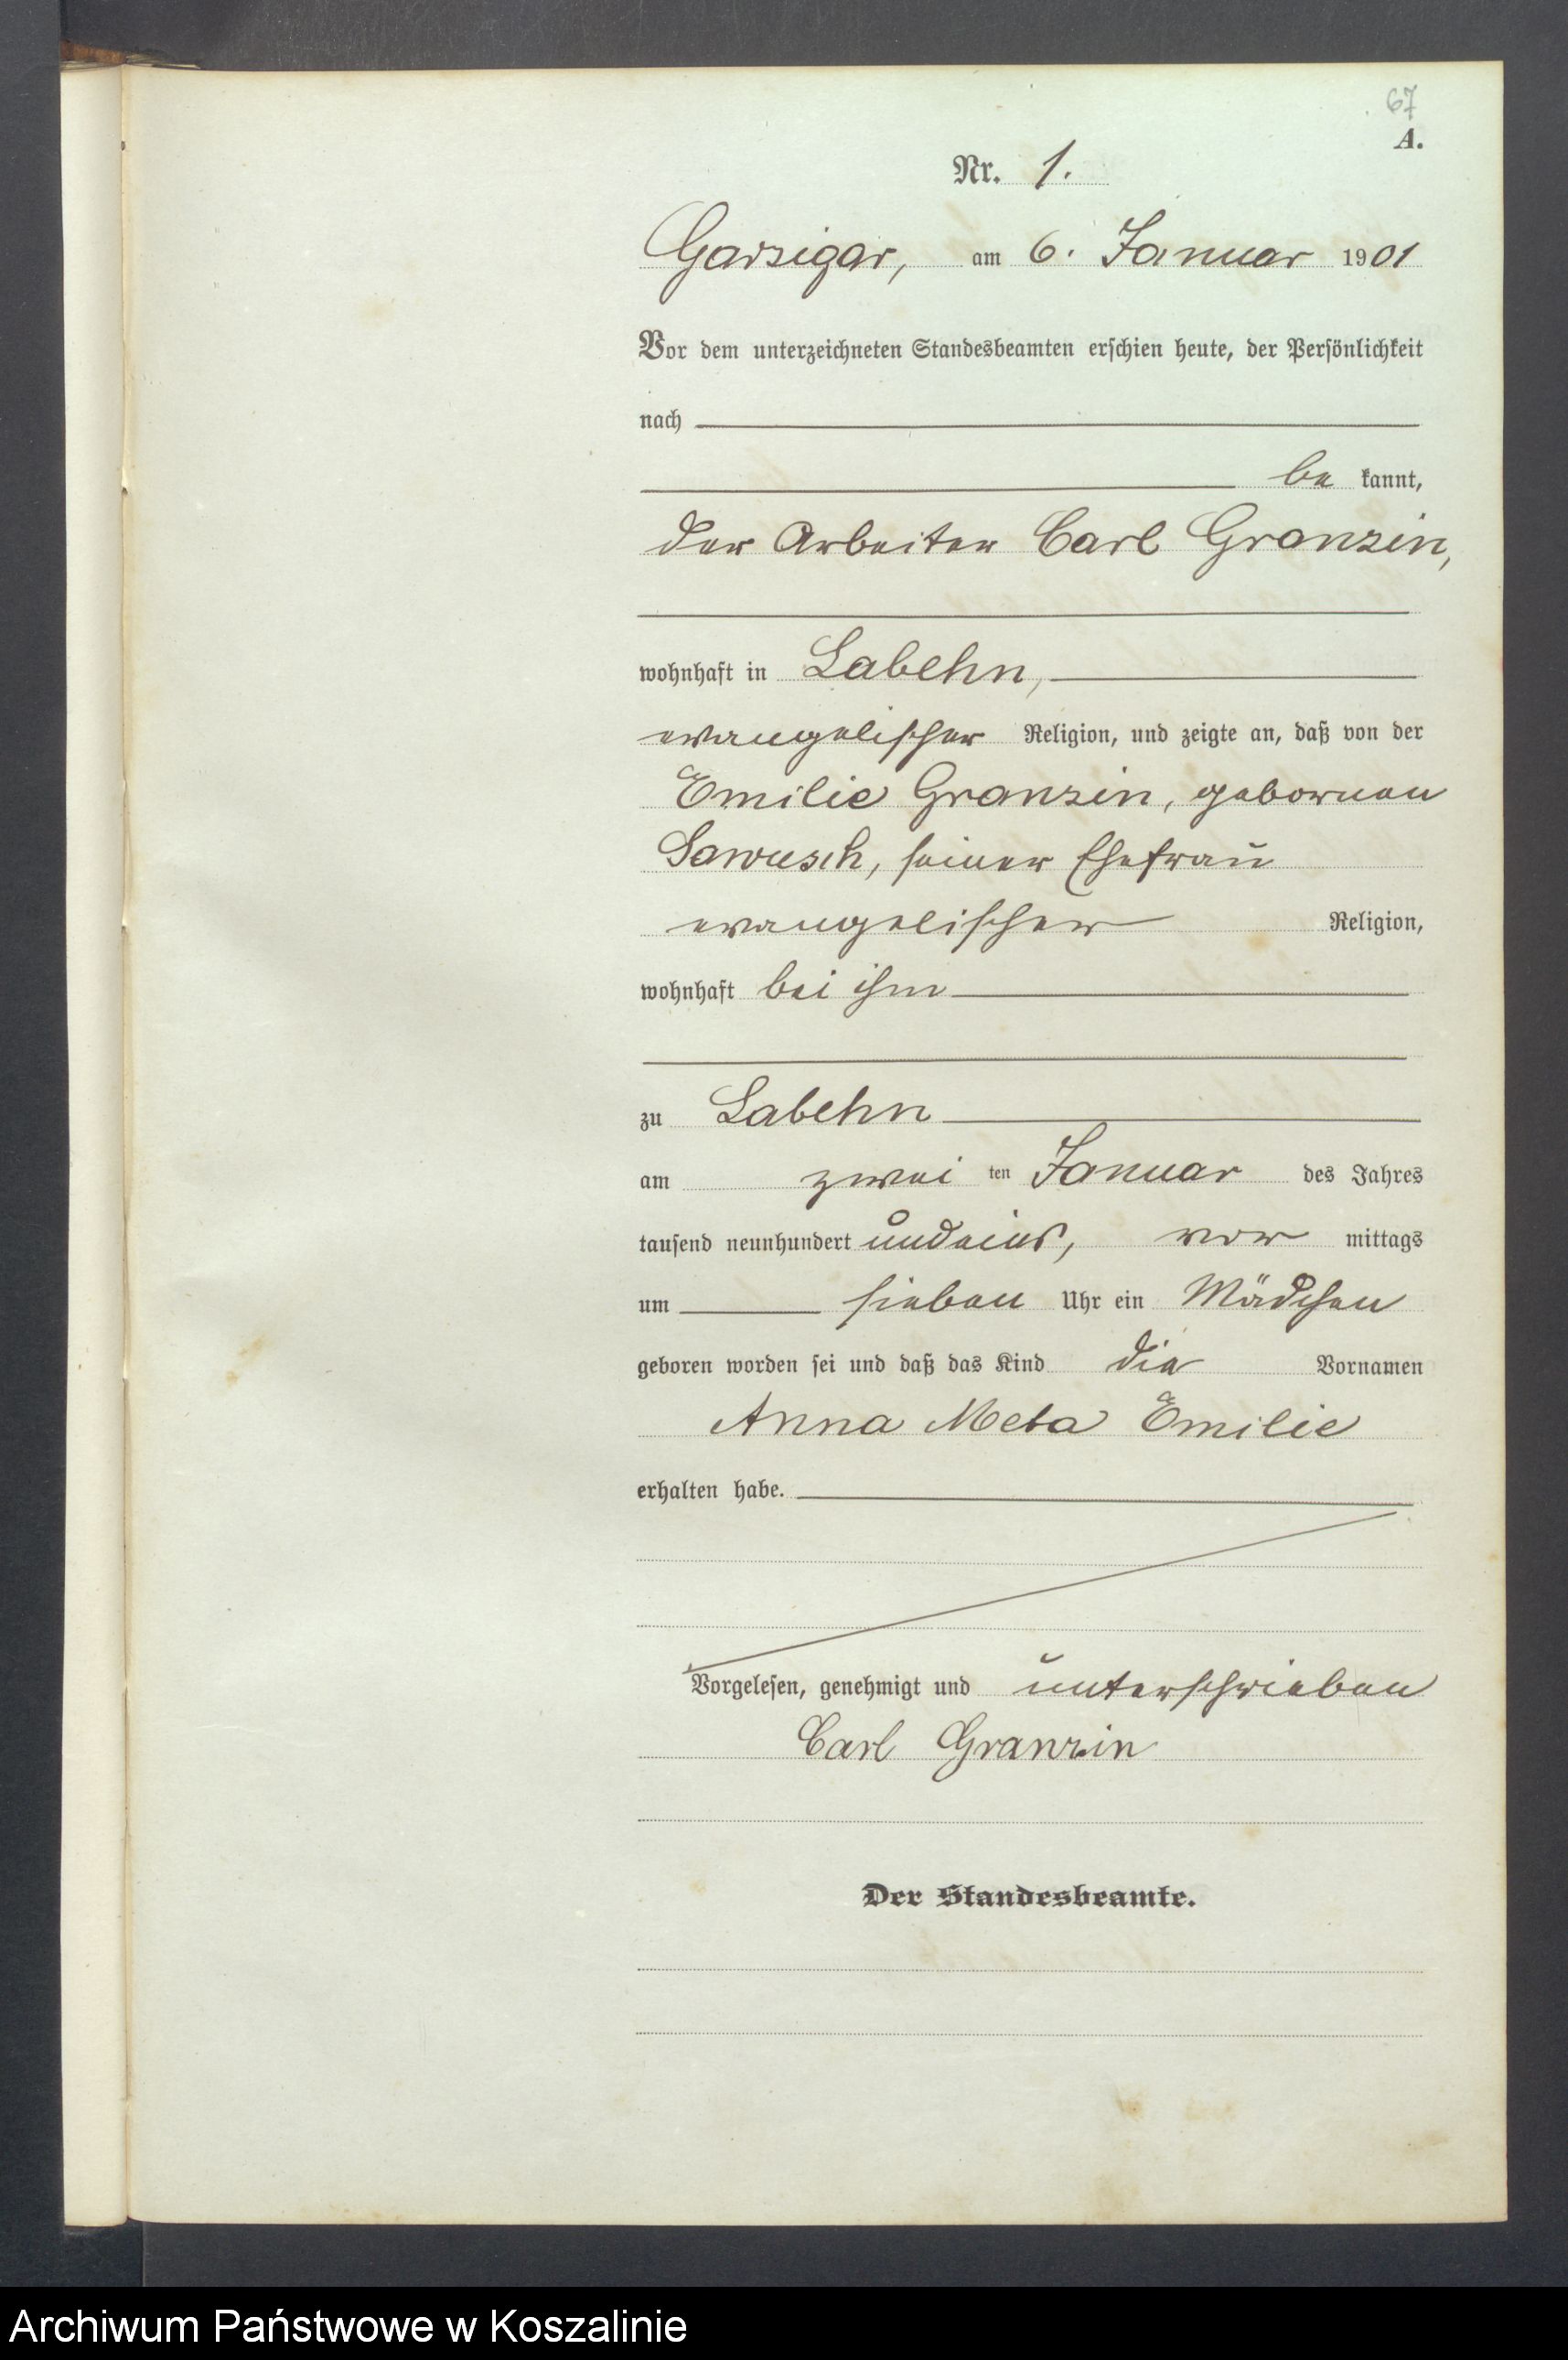 67
A.
Nr. 1.
Garzigar, am 6. Januar 1901
Vor dem unterzeichneten Standesbeamten erschien heute, der Persönlichkeit
nach
be kannt,
der Arbeiter Carl Granzin,
wohnhaft in Labehn,
evangelischer Religion, und zeigte an, daß von der
Emilie Granzin, gebornen
Sawusch, seiner Ehefrau
evangelischer Religion,
wohnhaft bei ihm
zu Labehn
am zwei ten Januar des Jahres
tausend neunhundert undeins, vor mittags
um sieben Uhr ein Mädchen
geboren worden sei und daß das Kind die Vornamen
Anna Meta Emilie
erhalten habe.
Vorgelesen, genehmigt und unterschrieben
Carl Granzin
Der Standesbeamte.
Archiwum Państwowe w Koszalinie